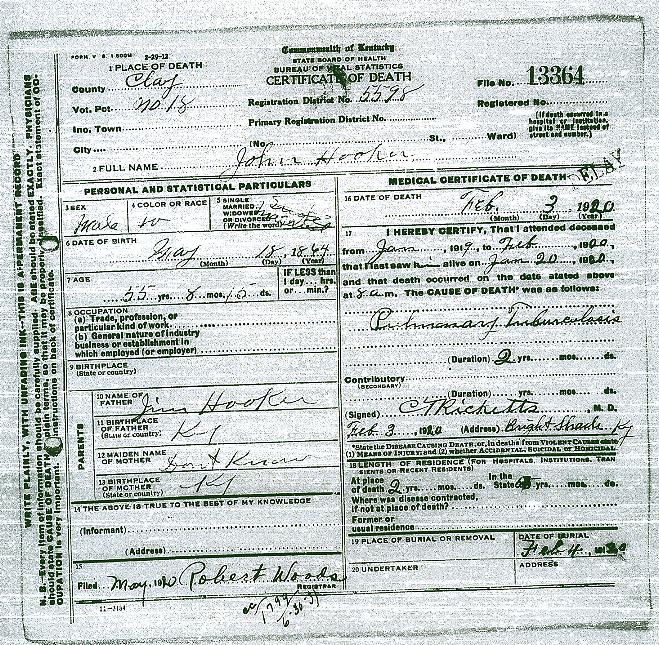 FORM V. S. 1 500M 2-29-12
Commonwealth of Kentucky
STATE BOARD OF HEALTH
BUREAU OF VITAL STATISTICS
CERTIFICATE OF DEATH
1 PLACE OF DEATH
County Clay
Vot. Pct. No. 18
Inc. Town
City
Registration District No. 5598
Primary Registration District No.
(No. St., Ward)
File No. 13364
Registered No.
(If death occurred in a hospital or institution, give its NAME instead of street and number.)
2 FULL NAME John Hooker
DELAY
PERSONAL AND STATISTICAL PARTICULARS
3 SEX Male
4 COLOR OR RACE W
5 SINGLE MARRIED, WIDOWED OR DIVORCED (Write the word)
6 DATE OF BIRTH May 18, 1864
(Month) (Day) (Year)
7 AGE 55 yrs. 8 mos. 15 ds.
IF LESS than 1 day... hrs. or... min.?
8 OCCUPATION
(a) Trade, profession, or particular kind of work
(b) General nature of industry business or establishment in which employed (or employer)
9 BIRTHPLACE
(State or country)
PARENTS
10 NAME OF FATHER Jim Hooker
11 BIRTHPLACE OF FATHER Ky
(State or country)
12 MAIDEN NAME OF MOTHER Dont Know
13 BIRTHPLACE OF MOTHER Ky
(State or country)
14 THE ABOVE IS TRUE TO THE BEST OF MY KNOWLEDGE
(Informant)
(Address)
15
Filed May, 1920 Robert Woods
REGISTRAR
11-3184
MEDICAL CERTIFICATE OF DEATH
16 DATE OF DEATH Feb. 3 1920
(Month) (Day) (Year)
17 I HEREBY CERTIFY, That I attended deceased
from Jan, 1919, to Feb, 1920,
that I last saw h im alive on Jan 20 1920,
and that death occurred on the date stated above
at 8 a m. The CAUSE OF DEATH* was as follows:
Pulmonary Tuberculosis
(Duration) 2 yrs. mos. ds.
Contributory
(SECONDARY)
(Duration) yrs. mos. ds.
(Signed) CT Ricketts, M. D.
Feb 3, 1920 (Address) Bright Shade Ky
*State the DISEASE CAUSING DEATH, or, in deaths from VIOLENT CAUSES state (1) MEANS OF INJURY; and (2) whether ACCIDENTAL, SUICIDAL or HOMICIDAL
18 LENGTH OF RESIDENCE (FOR HOSPITALS, INSTITUTIONS, TRANSIENTS OR RECENT RESIDENTS)
At place of death 2 yrs. mos. ds. In the State yrs. mos. ds.
Where was disease contracted, if not at place of death?
Former or usual residence
19 PLACE OF BURIAL OR REMOVAL
DATE OF BURIAL
Feb 4, 1920
20 UNDERTAKER
ADDRESS
WRITE PLAINLY, WITH UNFADING INK—THIS IS A PERMANENT RECORD
N. B.—Every item of information should be carefully supplied. AGE should be stated EXACTLY. PHYSICIANS should state CAUSE OF DEATH in plain terms, so that it may be properly classified. Exact statement of OCCUPATION is very important. See instructions on back of certificate.